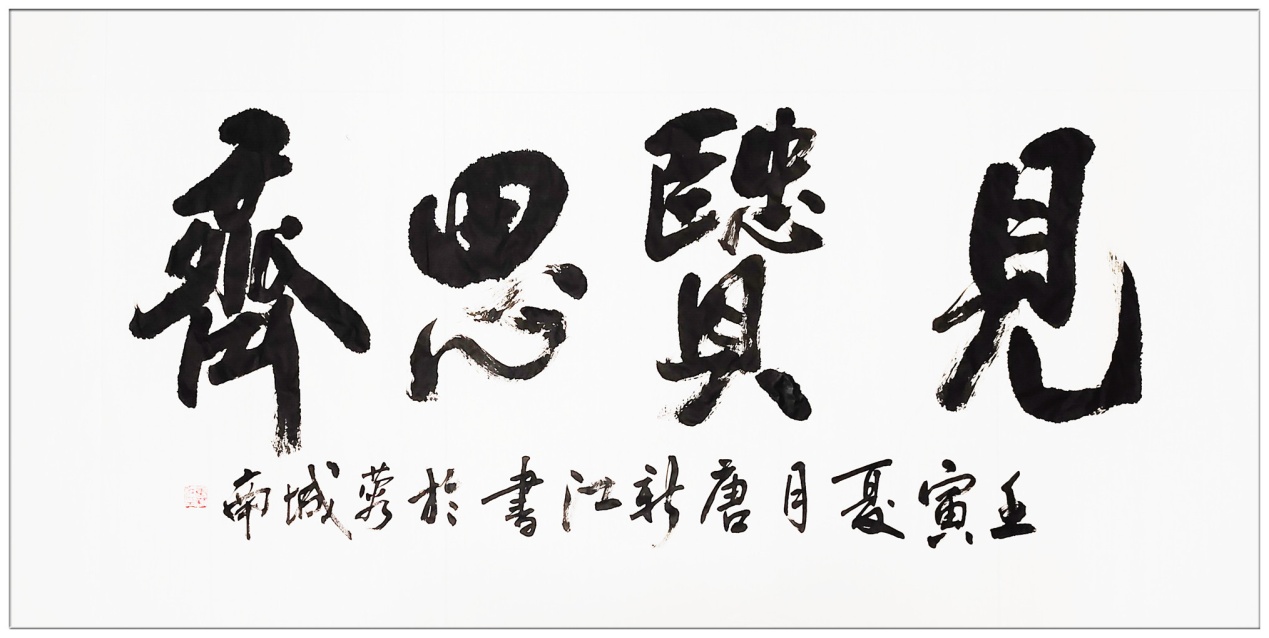 見賢思齊
壬寅夏月唐新江書於蓉城南